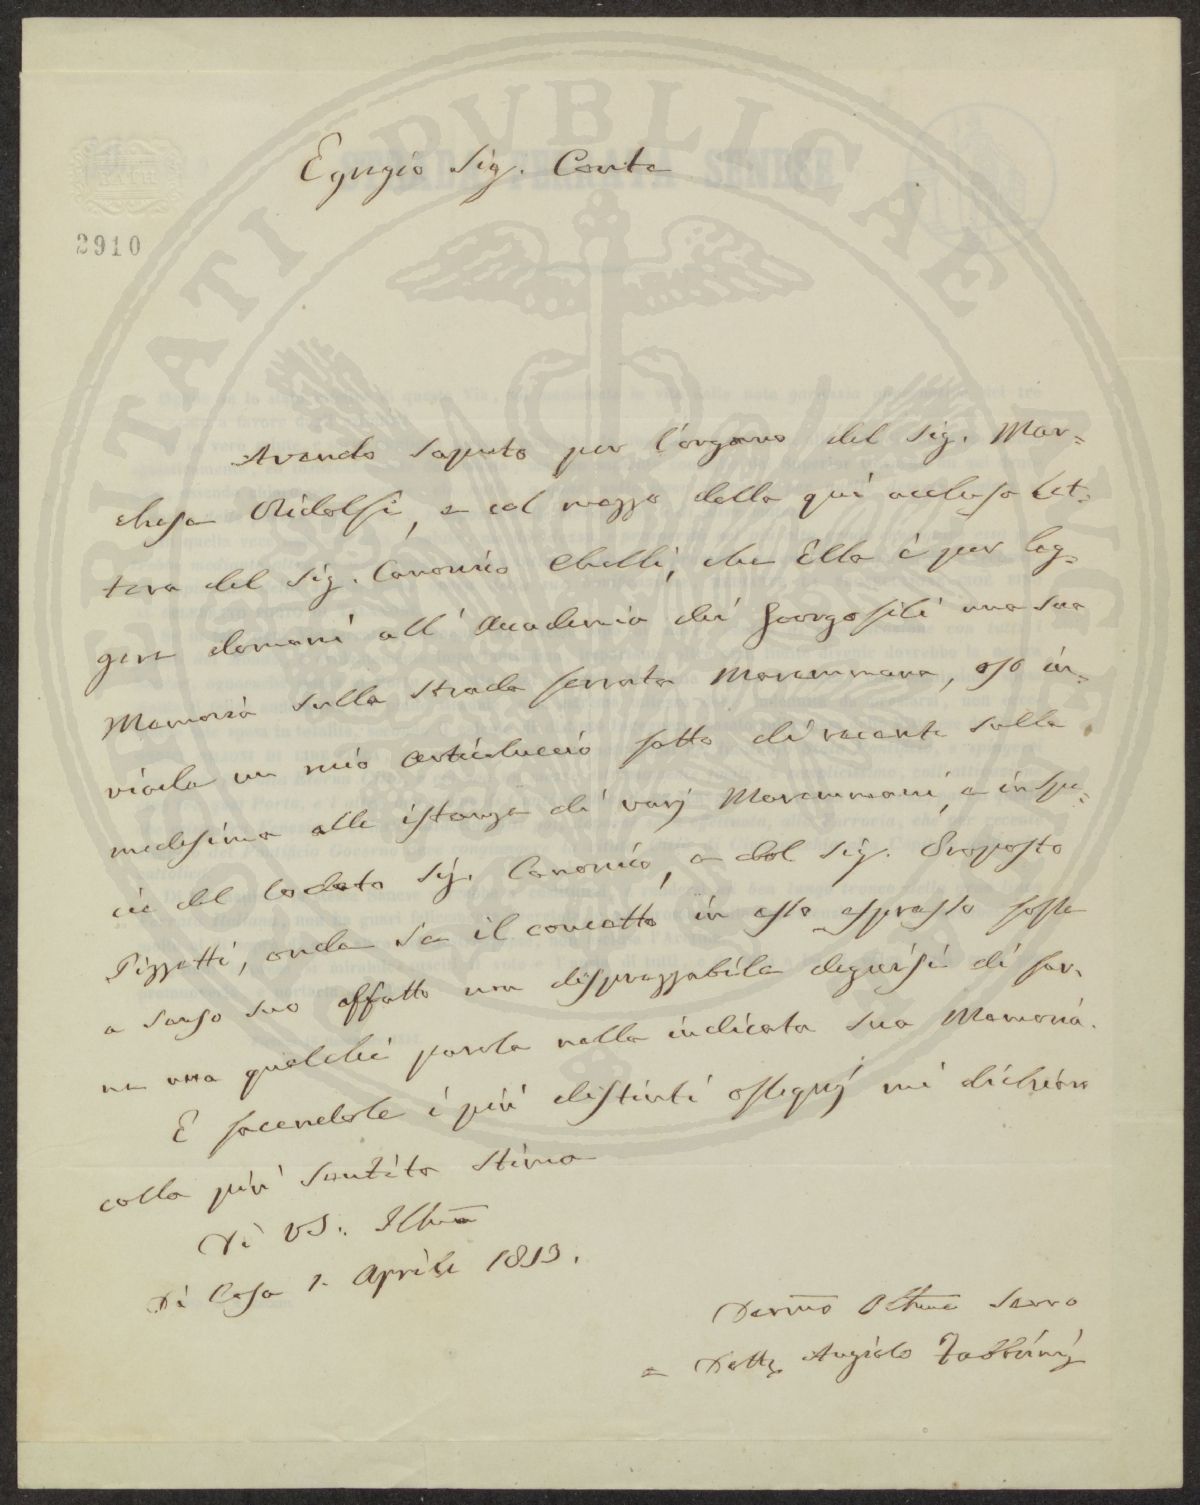 Egregio Sig. Conte
2910
Avendo saputo per l'organo del Sig. Mar=
chese Ridolfi, e col mezzo della qui acclusa Let=
tera del Sig. Canonico Chelli, che Ella è per leg=
gere domani all' Accademia dei Georgofili una sua
Memoria sulla Strada ferrata Maremmana, oso in=
viarle un mio articoluccio fatto di recente sulla
medesima alle istanze di varj Maremmani, e in spe=
cie del lodato Sig. Canonico, e del Sig. Proposto
Pizzetti, onde se il concetto in esso espresso fosse
a senso suo affatto non disprezzabile degnarsi di far=
ne una qualche parola nella indicata sua Memoria.
E facendole i più distinti ossequj mi dichiaro
colla più sentita stima
Di VS. Illma
Di Casa 1. Aprile 1853.
Devmo Obbmo Servo
Dott. Angiolo
PVBLICAE